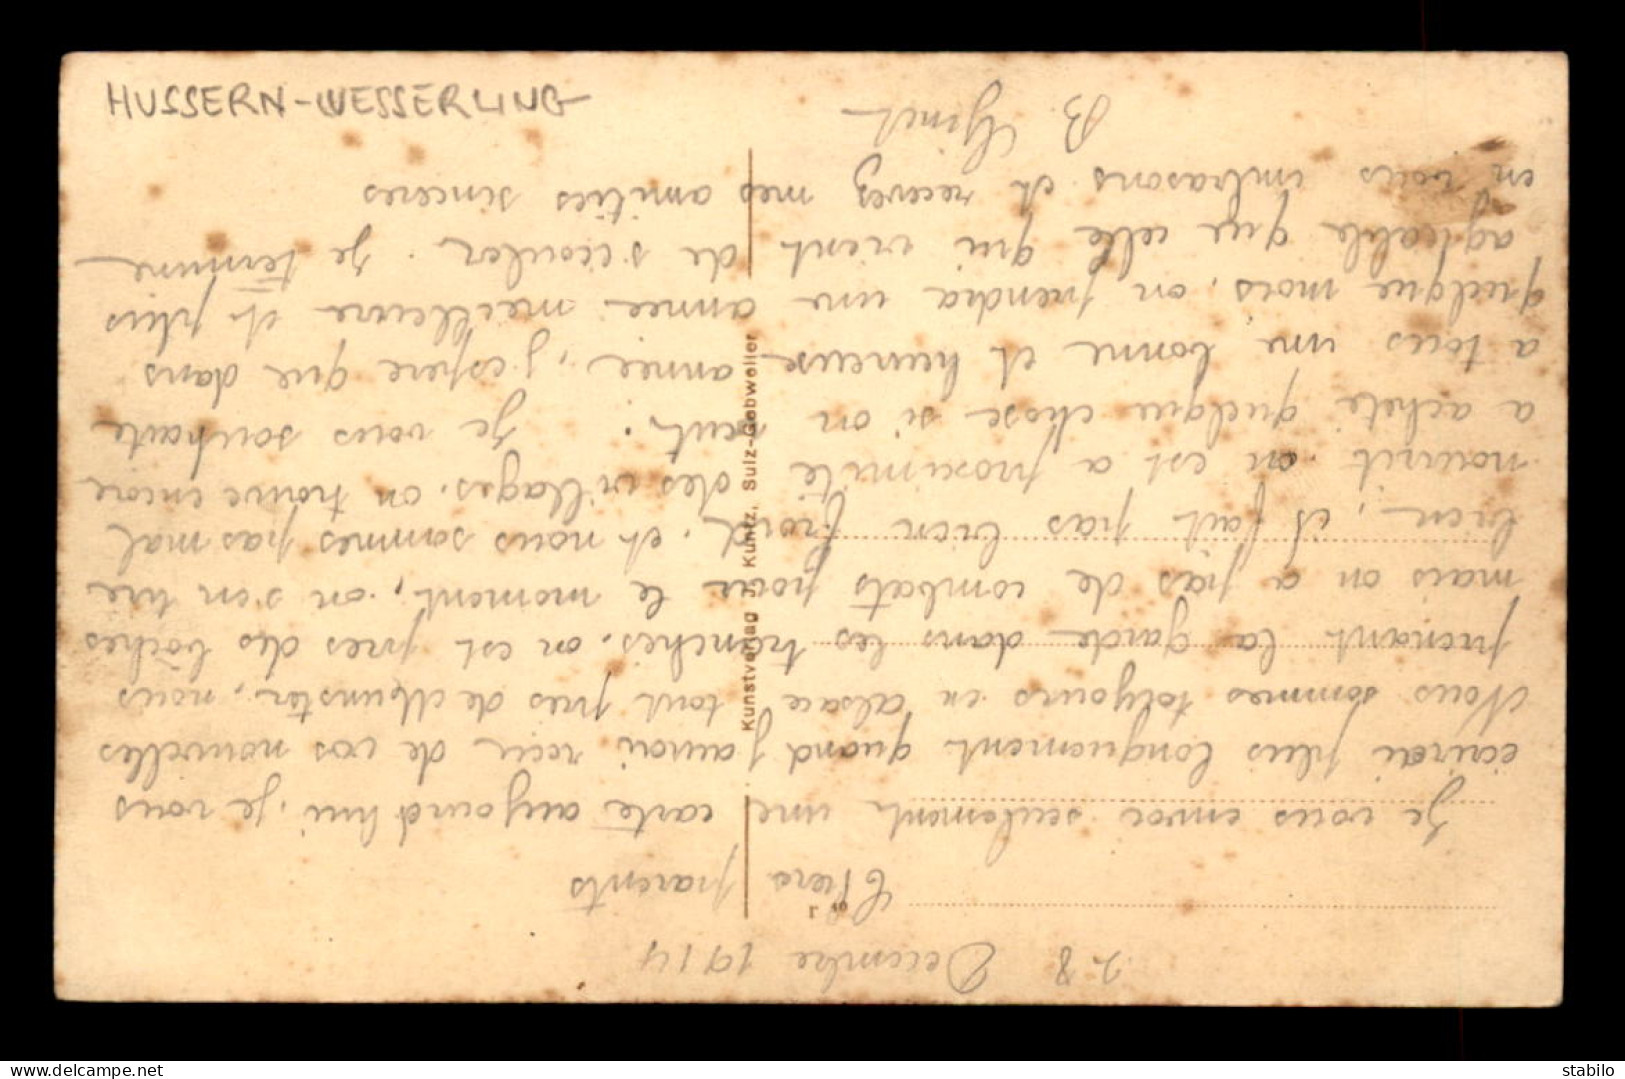 HUSSERN-WESSERLING
28 Decembre 1914
Chers parents
Je vous envoi seulement une carte aujourd hui. Je vous
ecirai plus longuement quand j'aurai reçu de vos nouvelles
Nous sommes toujours en alsace tout près de Munster, nous
prenant la garde dans les tranchés. on est pres des bôches
mais on a pas de combats pour le moment, on s'en tire
bien, il fait pas bien froid, et nous sommes pas mal
nourrit. on est a proximité des villages. on trouve encore
a acheté quelque chose si on veut. Je vous souhaite
a tous une bonne et heureuse année, j espere que dans
quelque mois, on prendra une année meilleure et plus
agréable que celle qui vient de s'écouler. Je termine
en vous embrasons et recevez mes amitiés sinceres
B.
Kunstverlag J. Kuntz, Sulz-Gebweiler
r 10
stabilo